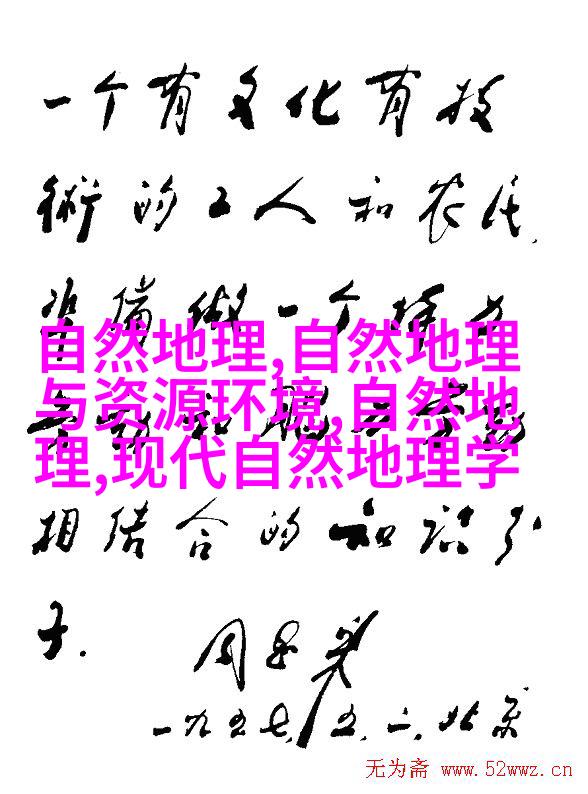 一个有文化有技
術的工人和农民,
准备做一个体力
劳动和脑力劳动
相结合的知识分
子.
周恩来
一九五七.五.二.北京
自然地理,自然地理
与资源环境,自然地
理,现代自然地理学
无为斋 www.52wwz.cn